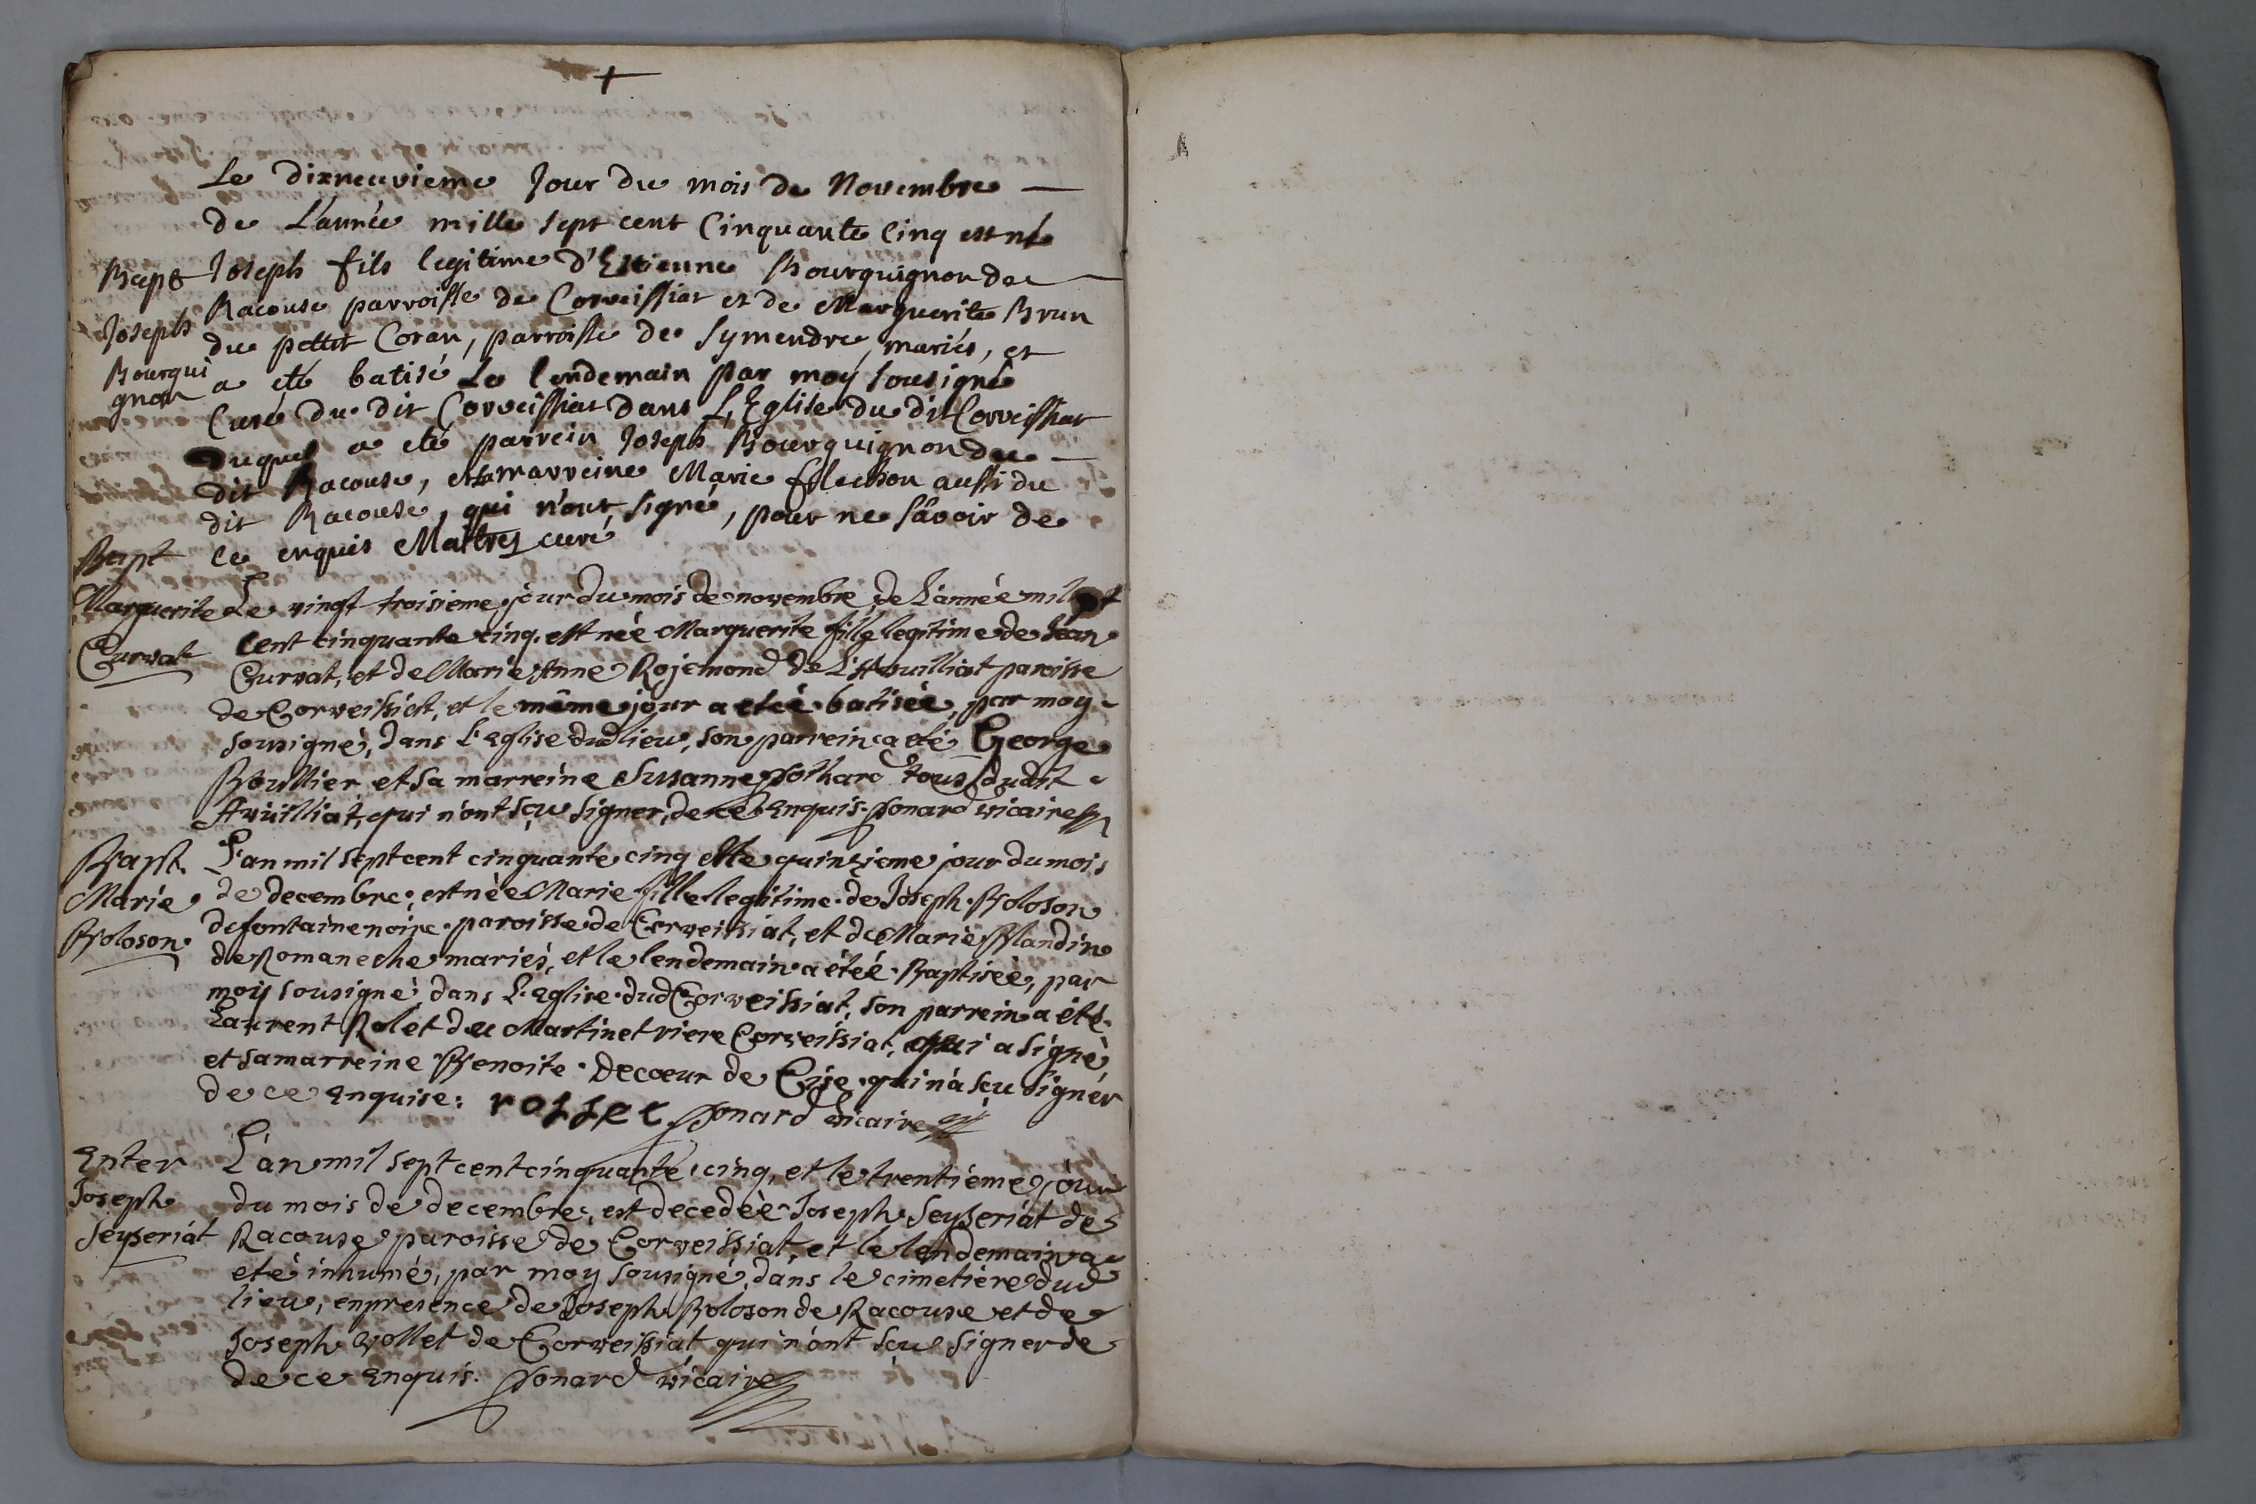 +
Le dixneuvieme Jour du mois de Novembre
de L'année mille sept cent Cinquante Cinq est né
Bapt Joseph fils legitime d'Estienne Bourguignon de
Racouse parroisse de Corveissiat et de Marguerite Brun
Joseph du pettit Coran, parroisse de Symendre, mariés, et
Bourgui a eté batisé Le lendemain par moy sousigné
gnon Curé du dit Corveissiat dans L'Eglise du dit Corveissiat
Duquel a eté parrein Joseph Bourguignon du
dit Racouse, et marreine Marie aussi du
dit Racouse, qui n'ont signé, pour ne sàvoir de
ce enquis Maitres curé
Bapt
Marguerite Le vingt troisieme jour du mois de novembre de L'année mil
Curvat Cent cinquante cinq, est née Marguerite fille legitime de Jean
Curvat, et de Marie Anne Rojemond de L'Avuilliat paroisse
de Corveissiat, et le même jour a eteé batisée, par moy
sousigné, dans l'Eglise dud lieu, son parrein a eté George
Boullier et sa marreine Susanne Pothard tous dudit
Avuilliat, qui n'ont sçu signer, de ce Enquis. Ponard vicaire
Bapt. L'an mil sept cent cinquante cinq et le quinzieme jour du mois
Marie de decembre, est née Marie fille legitime de Joseph Boloson
Boloson. de fontaine noire paroisse de Corveissiat, et de Marie Blandin
de Romaneche mariés, et le lendemain a étéé Baptisée, par
moy sousigné, dans L'Eglise dud Corveissiat, son parrein a été
Laurent Rolet du Martinet riere Corveissiat, qui a signé,
et sa marreine Benoite Decoeur de Cize qui n'a sçu signér
de ce Enquise: rollet Ponard vicaire
Enter L'an mil sept cent cinquante cinq, et le trentiéme jour
Joseph du mois de decembre, est decedèe Joseph Seyzeriát de
Seyzeriát Racouze paroisse de Corveissiat, et le lendemain a
eté inhumé, par moy sousigné, dans le cimetière dud
lieu, en presence de Joseph Boloson de Racouze et de
Joseph vollet de Corveissiat qui n'ont sçu signer de
de ce Enquis. Ponard vicaire